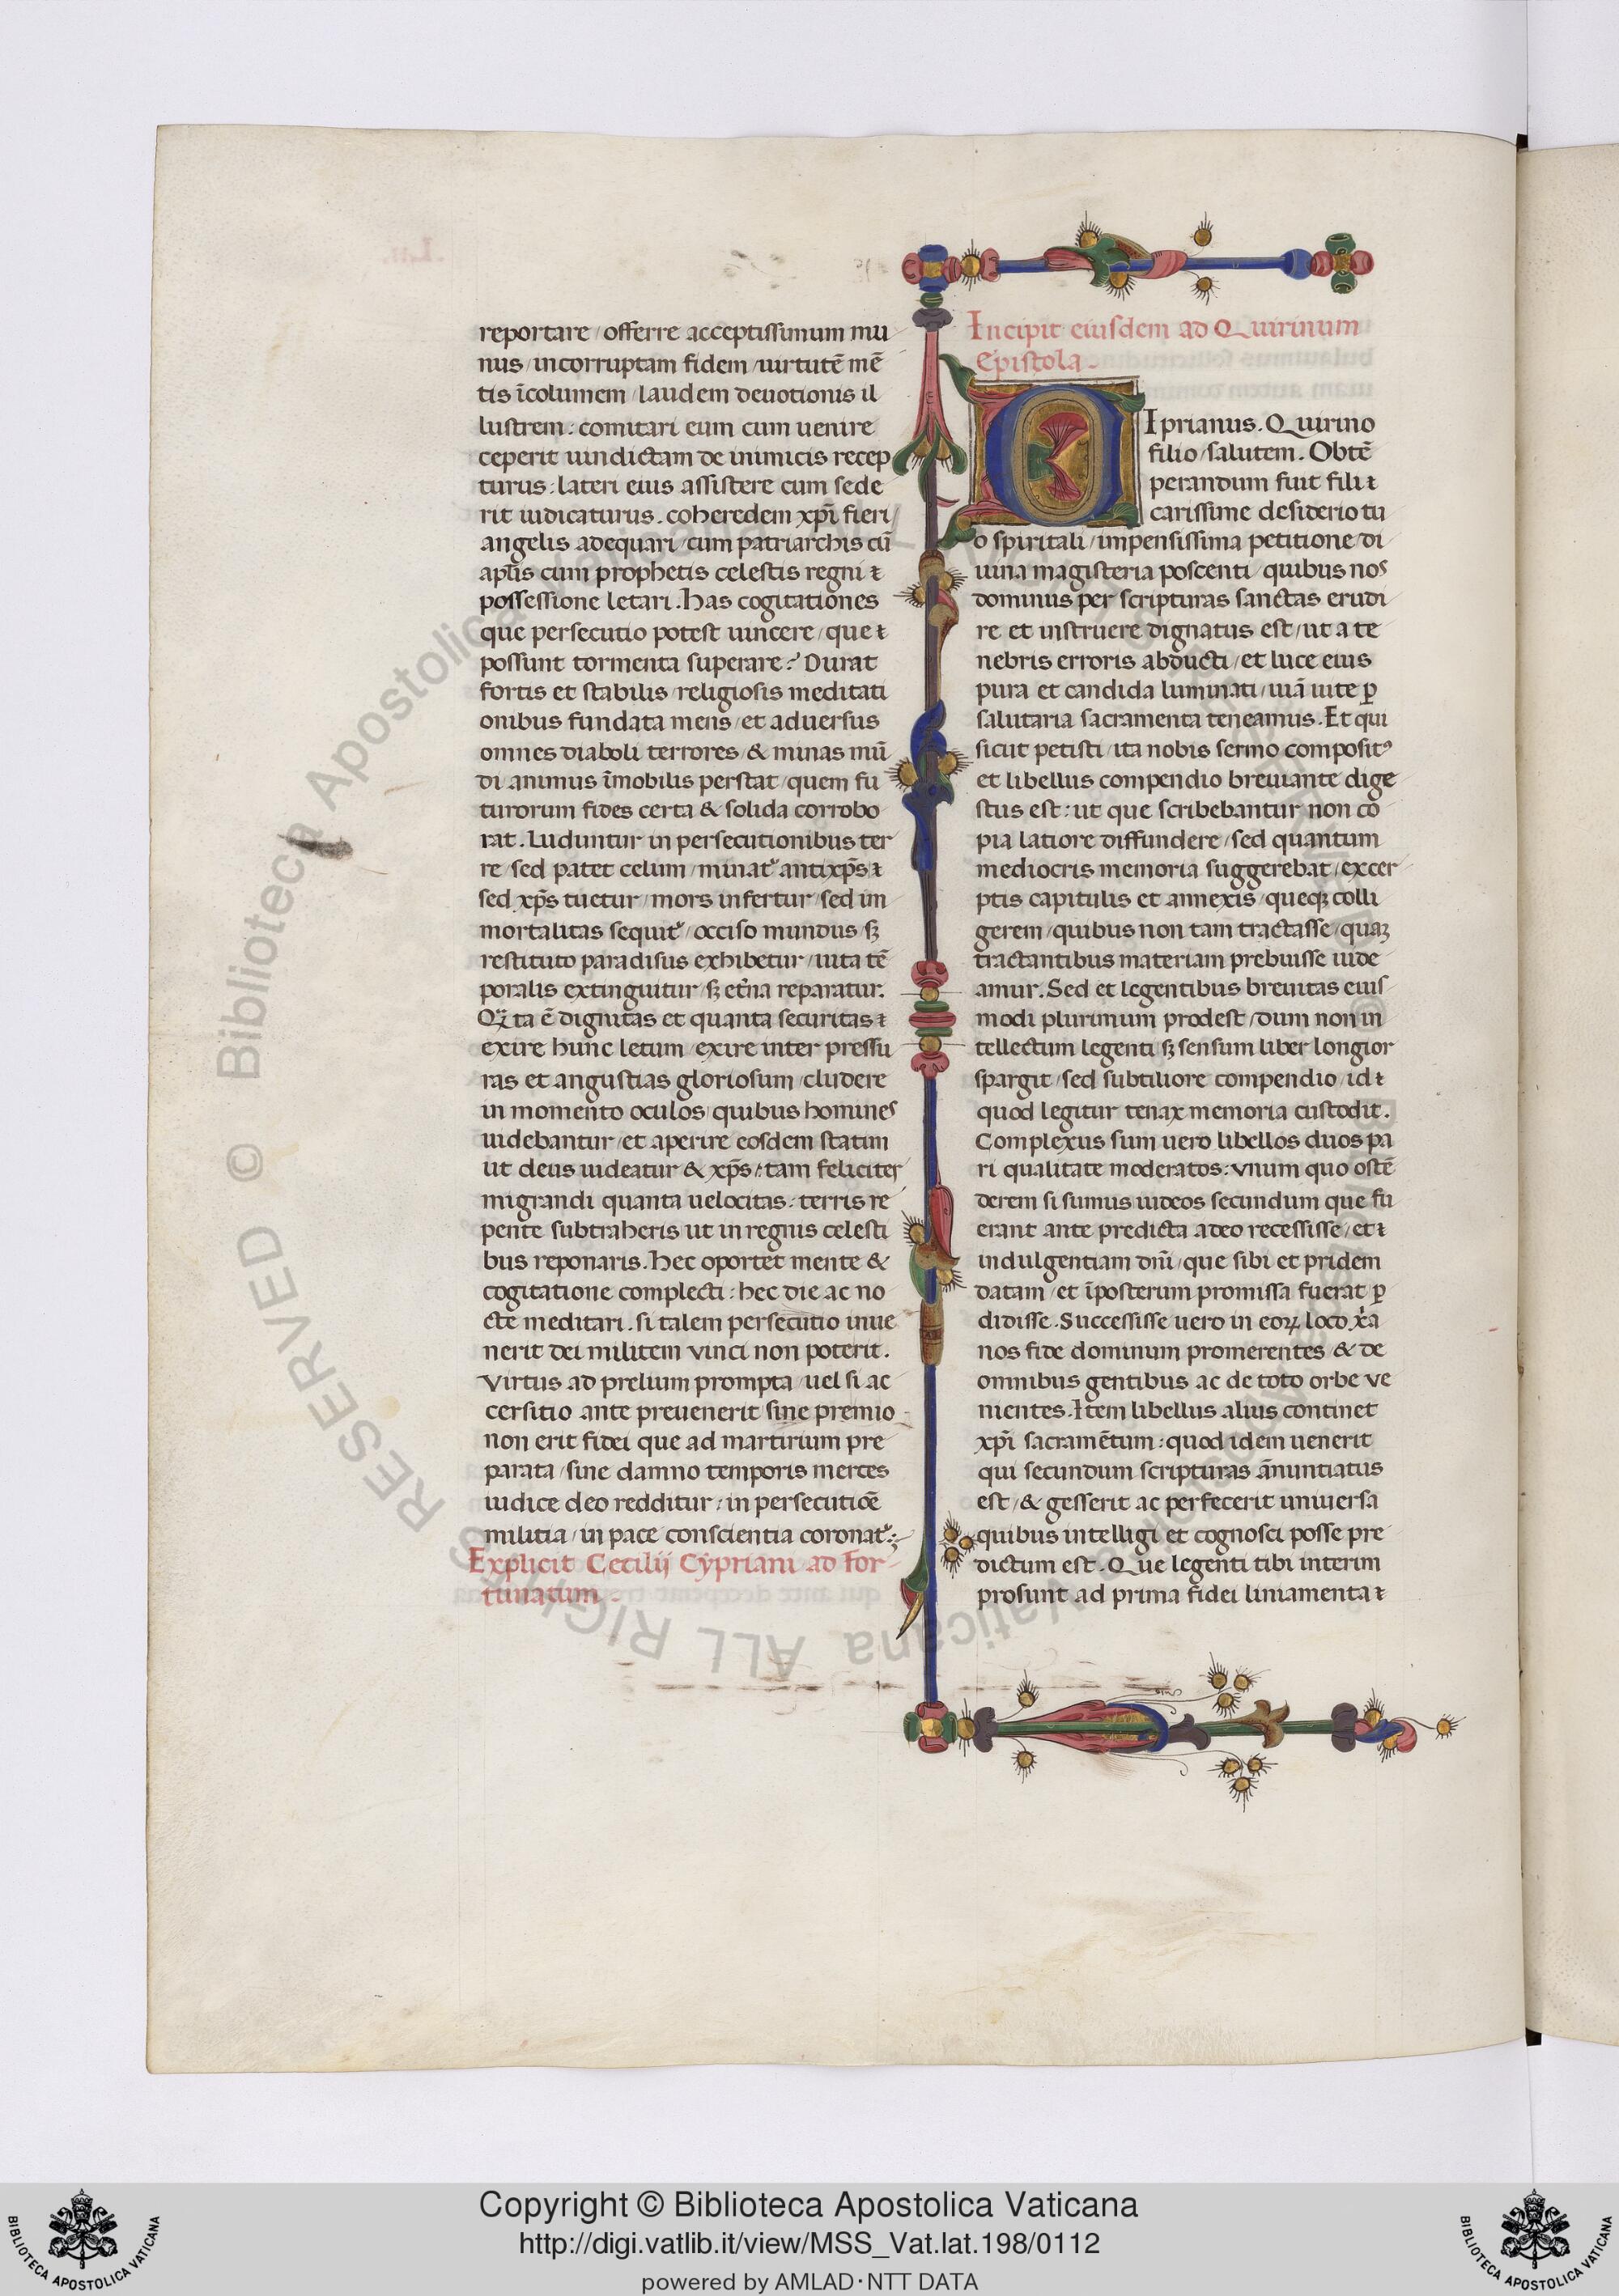 reportare / offerre acceptissimum mu
nus / incorruptam fidem / uirtutē mē
tis īcolumem / laudem deuotionis il
lustrem : comitari eum cum uenire
ceperit uindictam de inimicis recep
turus : lateri eius assistere cum sede
rit iudicaturus . coheredem xp̄i fieri /
angelis adequari / cum patriarchis cū
apl̄is cum prophetis celestis regni
possessione letari . has cogitationes
que persecutio potest uincere / que
possunt tormenta superare ? Durat
fortis et stabilis / religiosis meditati
onibus fundata mens / et aduersus
omnes diaboli terrores / & minas mū
di animus īmobilis perstat / quem fu
turorum fides certa & solida corrobo
rat . Luduntur in persecutionibus ter
re / sed patet celum / minat᷑ antixp̄s
sed xp̄s tuetur / mors infertur / sed im
mortalitas sequit᷑ / occiso mundus / sꝫ
restituto paradisus exhibetur / uita tē
poralis extinguitur / sꝫ et̄na reparatur .
Qͣ̄ta ē dignitas et quanta securitas
exire hunc letum / exire inter pressu
ras et angustias gloriosum / cludere
in momento oculos quibus homines
uidebantur / et aperire eosdem statim
ut deus uideatur & xp̄s / tam feliciter
migrandi quanta uelocitas : terris re
pente subtraheris ut in regnis celesti
bus reponaris . hec oportet mente &
cogitatione complecti : hec die ac no
cte meditari . si talem persecutio inue
nerit dei militem vinci non poterit .
Virtus ad prelium prompta / uel si ac
cersitio ante preuenerit sine premio
non erit fidei que ad martirium pre
parata / sine damno temporis merces
iudice deo redditur / in persecutiōe
militia / in pace conscientia coronat᷑ :
Explicit Cecilij Cypriani ad For
tunatum .
Incipit eiusdem ad Quirinum
Epistola .
CIprianus . Quirino
filio / salutem . Obtē
perandum fuit fili
carissime desiderio tu
o spiritali / impensissima petitione / di
uina magisteria poscenti / quibus nos
dominus per scripturas sanctas erudi
re et instruere dignatus est / ut a te
nebris erroris abducti / et luce eius
pura et candida luminati / uiā uite ꝑ
salutaria sacramenta teneamus . Et qui
sicut petisti / ita nobis sermo composit⁹
et libellus compendio breuiante dige
stus est : ut que scribebantur non co
pia latiore diffundere / sed quantum
mediocris memoria suggerebat / excer
ptis capitulis et annexis / queqꝫ colli
gerem / quibus non tam tractasse / quaꝫ
tractantibus materiam prebuisse uide
amur . Sed et legentibus breuitas eius
modi plurimum prodest / dum non in
tellectum legenti sꝫ sensum liber longior
spargit / sed subtiliore compendio / id
quod legitur tenax memoria custodit .
Complexus sum uero libellos duos pa
ri qualitate moderatos : vnum quo ostē
derem si sumus iudeos secundum que fu
erant ante predicta a deo recessisse / et
indulgentiam dn̄i / que sibi et pridem
datam / et īposterum promissa fuerat ꝑ
didisse . Successisse uero in eoꝝ loco xr̄a
nos fide dominum promerentes / & de
omnibus gentibus ac de toto orbe ve
nientes . Item libellus alius continet
xp̄i sacramētum : quod idem uenerit
qui secundum scripturas ānuntiatus
est / & gesserit ac perfecerit uniuersa
quibus intelligi et cognosci posse pre
dictum est . Que legenti tibi interim
prosunt ad prima fidei liniamenta
Copyright © Biblioteca Apostolica Vaticana
http://digi.vatlib.it/view/MSS_Vat.lat.198/0112
powered by AMLAD·NTT DATA
BIBLIOTECA APOSTOLICA VATICANA
BIBLIOTECA APOSTOLICA VATICANA